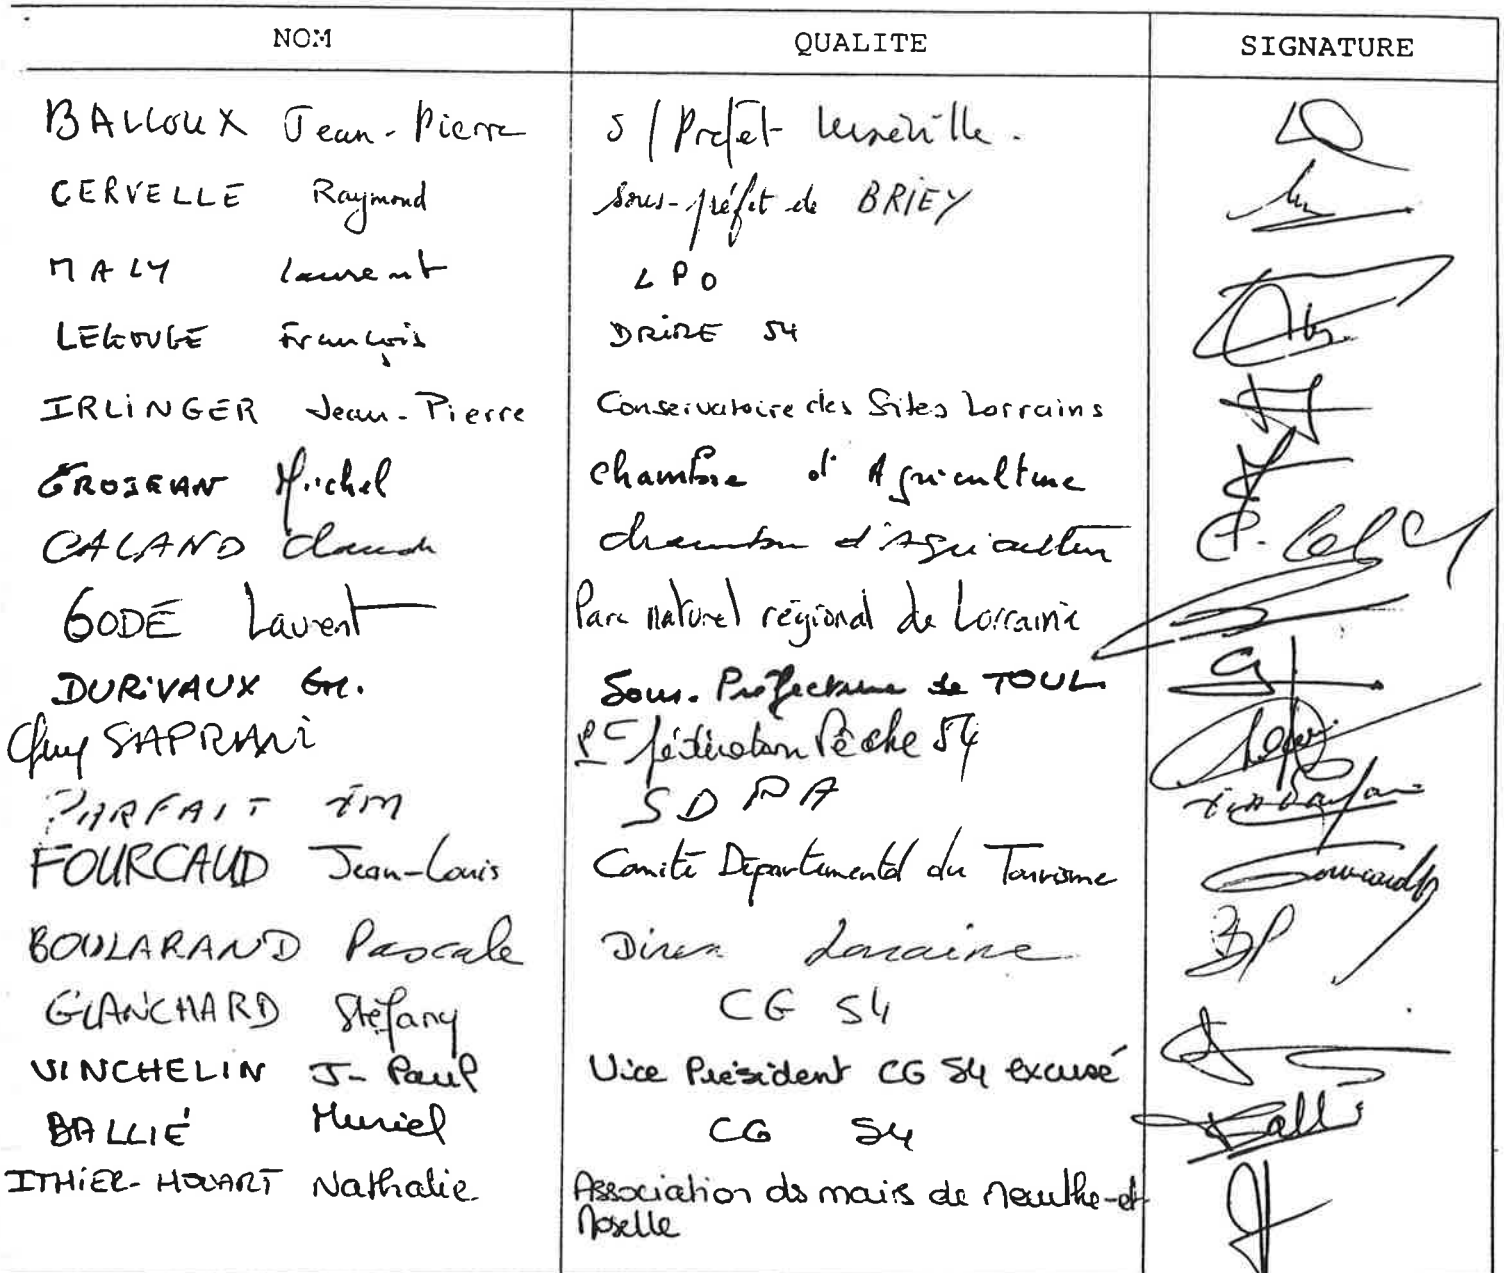 NOM QUALITE SIGNATURE
BALLOUX Jean-Pierre S/Préfet Lunéville.
CERVELLE Raymond Sous-préfet de BRIEY
MALY Laurent LPO
LEGOUGE François DRIRE 54
IRLINGER Jean-Pierre Conservatoire des Sites Lorrains
GROSJEAN Michel Chambre d'Agriculture
CALAND Claude chambre d'Agriculture
GODÉ Laurent Parc naturel régional de Lorraine
DURIVAUX Sous-Préfecture de TOUL
Guy fédération Pêche 54
PARFAIT JM
FOURCAUD Jean-Louis Comité Départemental du Tourisme
BOULARAND Pascale Diren Lorraine
GLANCHARD Stéfany CG 54
VINCHELIN J-Paul Vice Président CG 54 excusé
BALLIÉ Muriel CG 54
ITHIER-HOUART Nathalie Association ds mairs de Meurthe-et-
Moselle